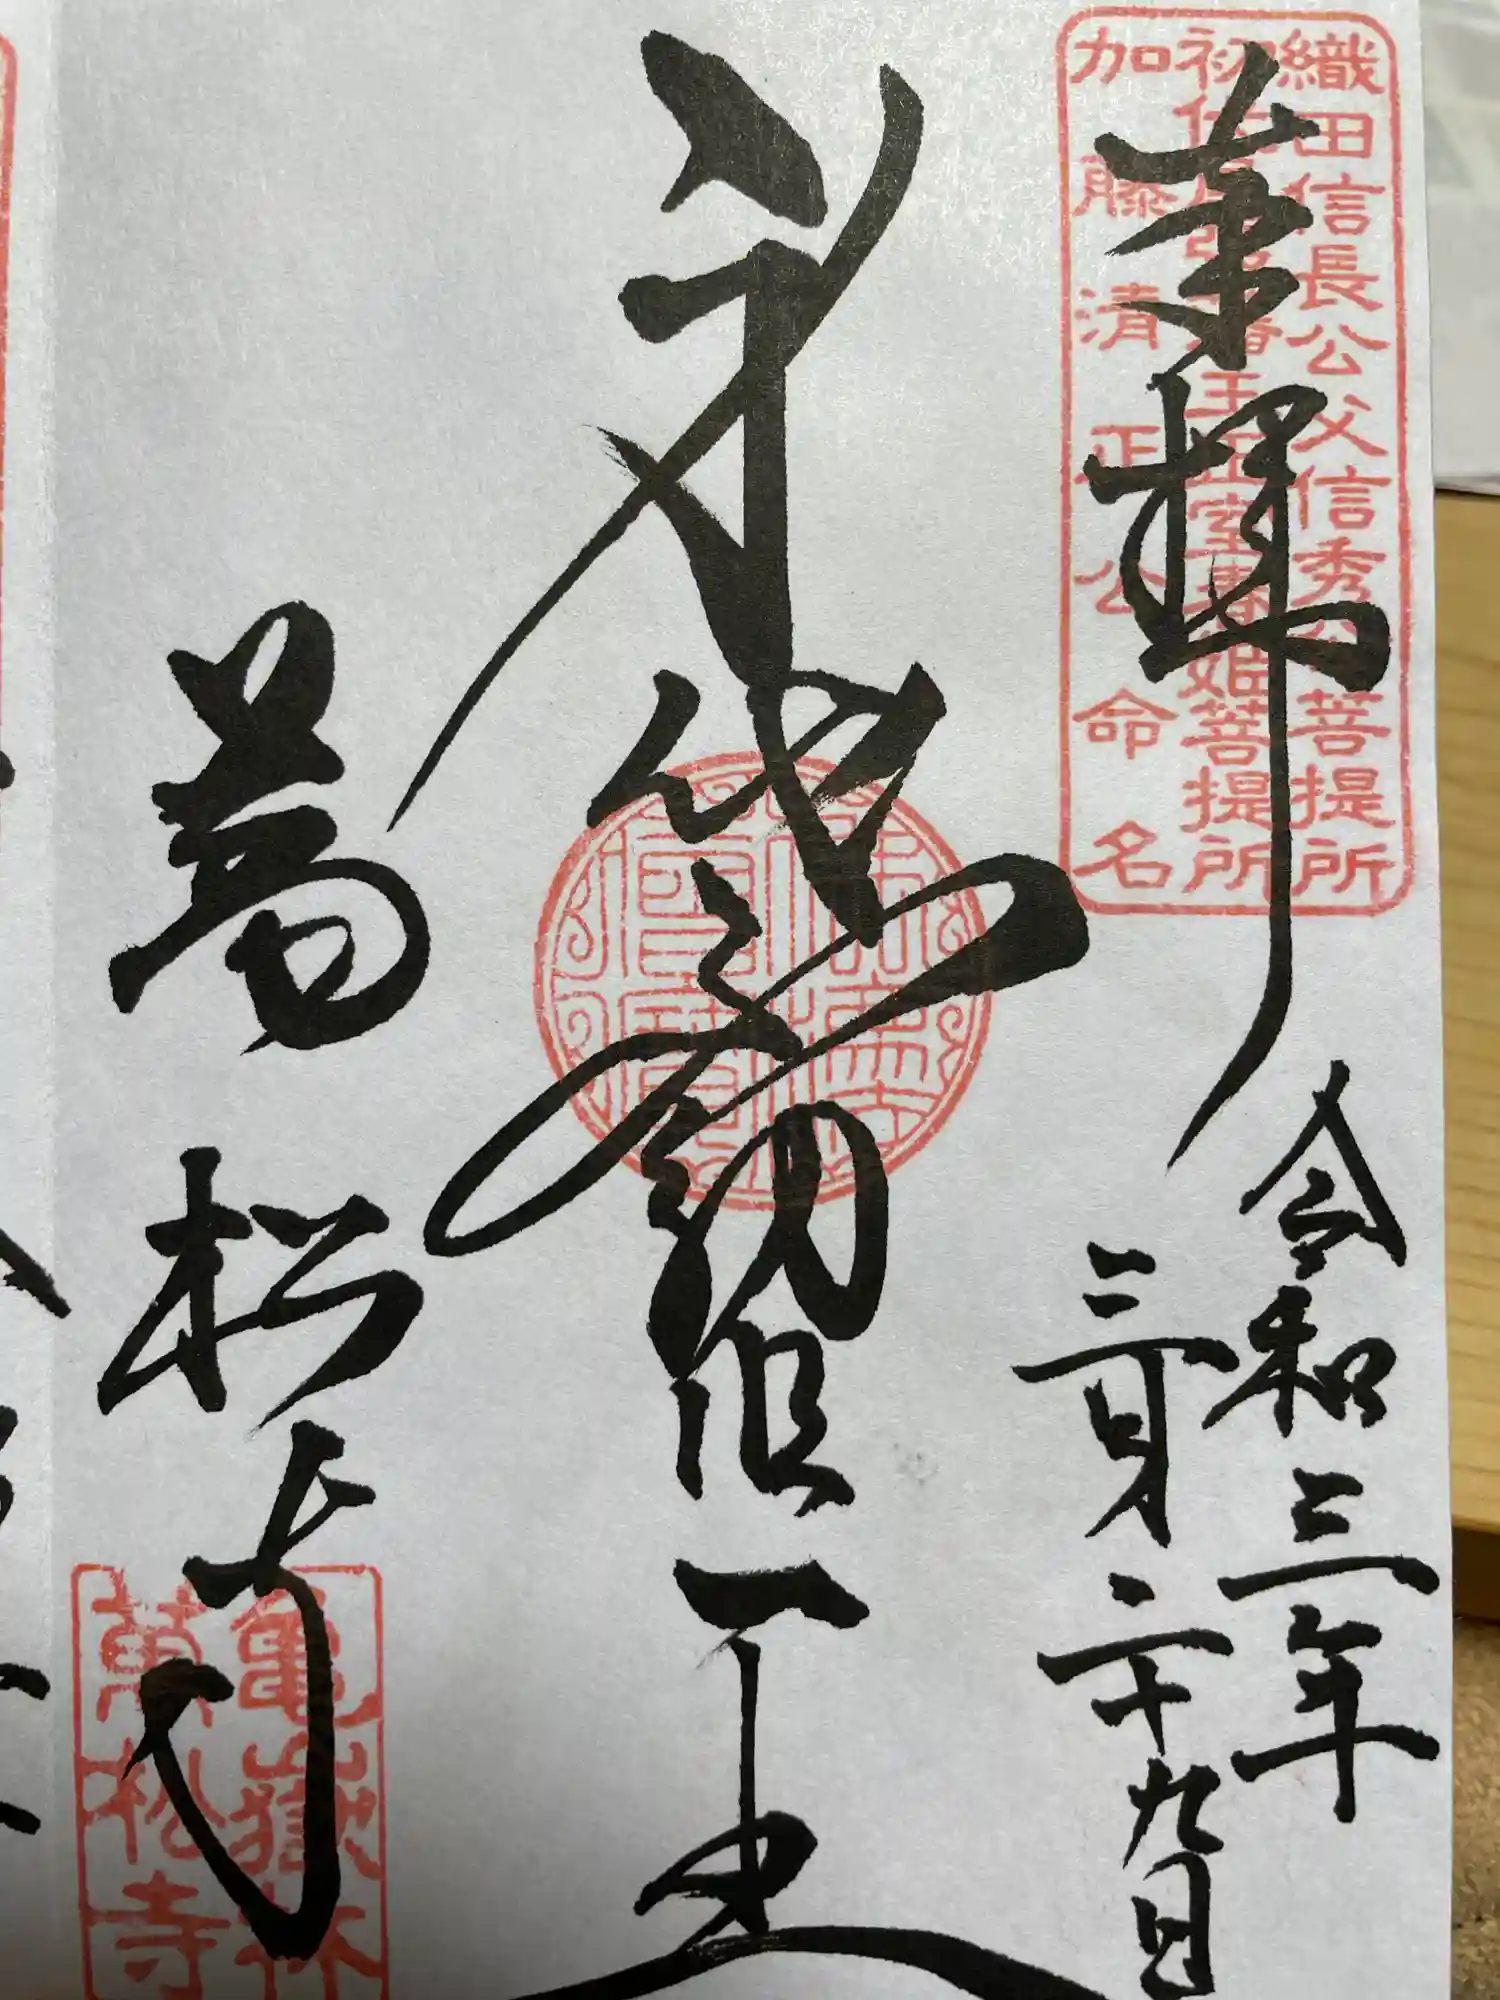 奉拝
織田信長公父信秀公菩提所
初代尾張藩主正室春姫菩提所
加藤清正公命名
令和三年
三月二十九日
身代不動明王
萬松寺
亀嶽林
萬松寺